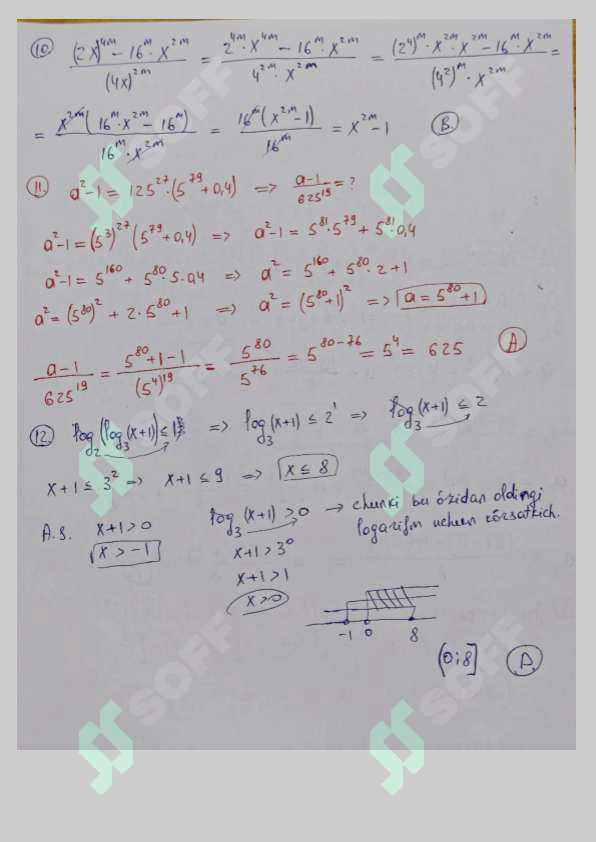 10. (2x)^{4m} - 16^m · x^{2m} / (4x)^{2m} = 2^{4m} · x^{4m} - 16^m · x^{2m} / 4^{2m} · x^{2m} = (2^4)^m · x^{2m} · x^{2m} - 16^m · x^{2m} / (4^2)^m · x^{2m} =
= x^{2m} (16^m · x^{2m} - 16^m) / 16^m · x^{2m} = 16^m (x^{2m} - 1) / 16^m = x^{2m} - 1 B
11. a^2 - 1 = 125^{27} · (5^{79} + 0,4) ⇒ a-1 / 625^{19} = ?
a^2 - 1 = (5^3)^{27} (5^{79} + 0,4) ⇒ a^2 - 1 = 5^{81} · 5^{79} + 5^{81} · 0,4
a^2 - 1 = 5^{160} + 5^{80} · 5 · 0,4 ⇒ a^2 = 5^{160} + 5^{80} · 2 + 1
a^2 = (5^{80})^2 + 2 · 5^{80} + 1 ⇒ a^2 = (5^{80} + 1)^2 ⇒ a = 5^{80} + 1
a-1 / 625^{19} = 5^{80} + 1 - 1 / (5^4)^{19} = 5^{80} / 5^{76} = 5^{80-76} = 5^4 = 625 A
12. log_2 (log_3 (x+1) ≤ 1 ⇒ log_3 (x+1) ≤ 2^1 ⇒ log_3 (x+1) ≤ 2
x+1 ≤ 3^2 ⇒ x+1 ≤ 9 ⇒ x ≤ 8
A.S. x+1 > 0 log_3 (x+1) > 0 → chunki bu o'zidan oldingi
x > -1 logarifm uchun ko'rsatkich.
x+1 > 3^0
x+1 > 1
x > 0
-1 0 8
(0; 8] A
SOFF
SOFF
SOFF
SOFF
SOFF
SOFF